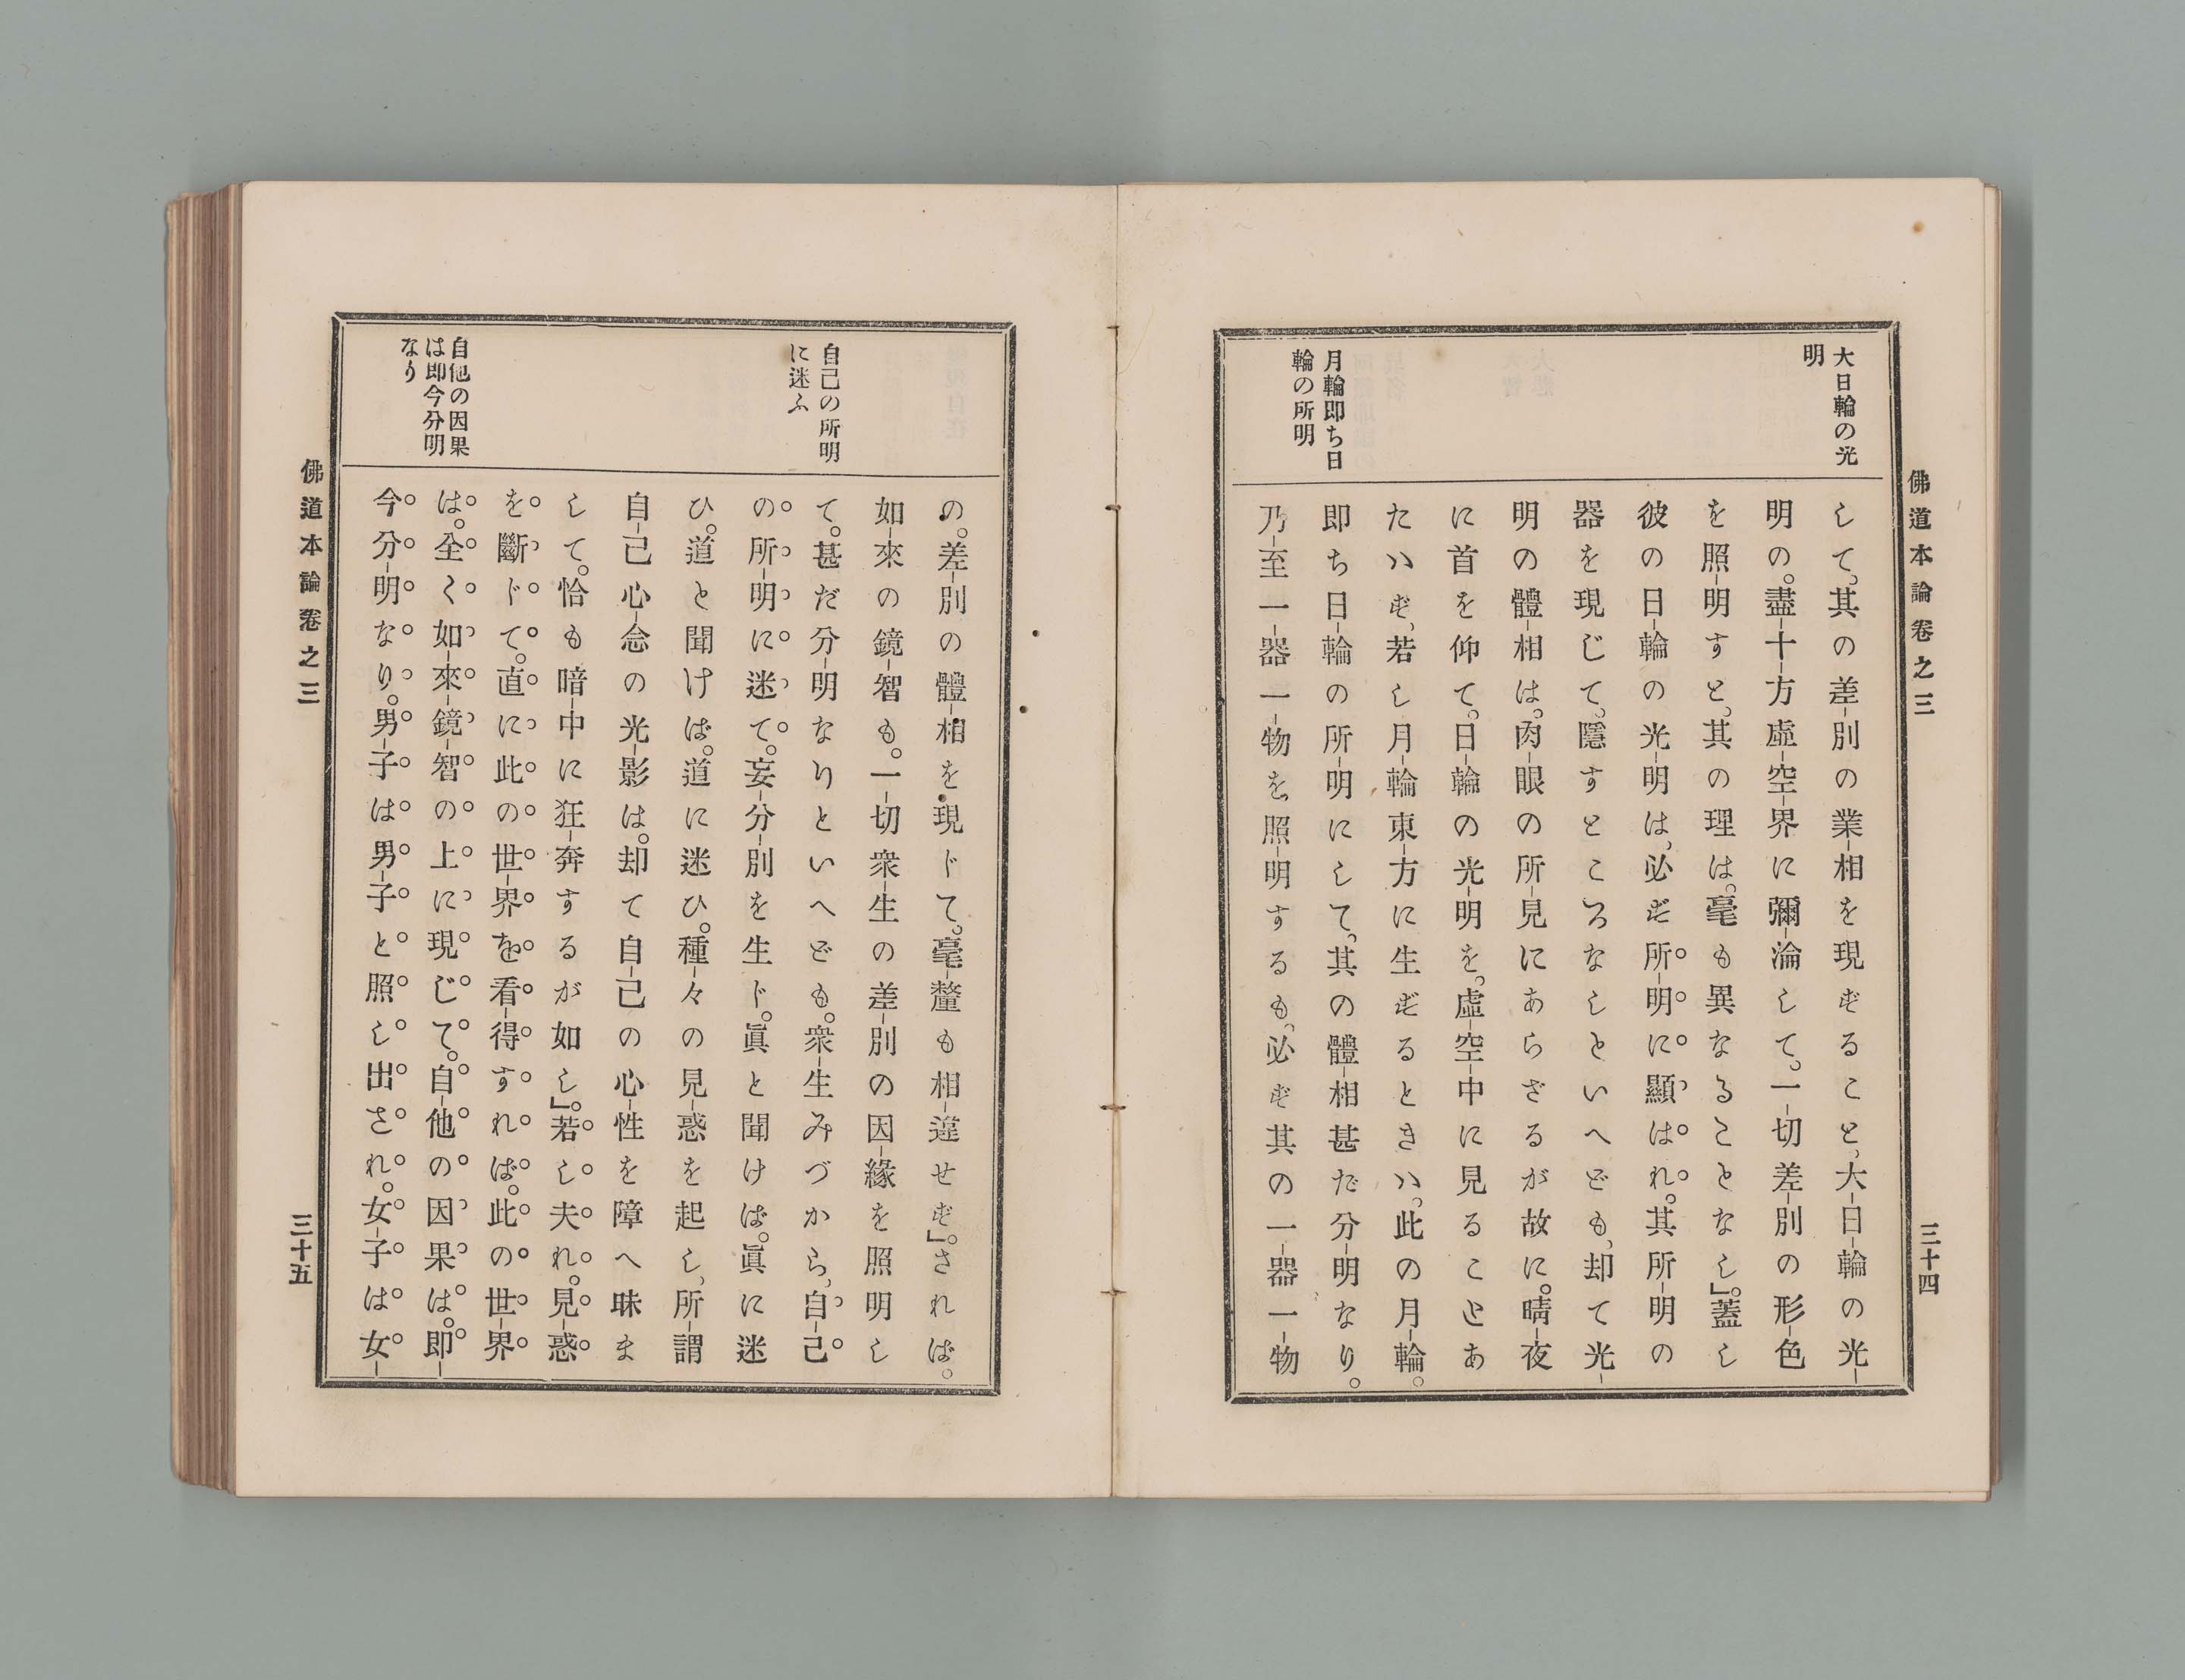 佛道本論卷之三
三十四
大日輪の光
明
月輪即ち日
輪の所明
して。其の差別の業相を現ずること。大日輪の光
明の。盡十方虛空界に彌淪して。一切差別の形色
を照明すと。其の理は。毫も異なることなし」。蓋し
彼の日輪の光明は。必ず所明に顯はれ。其所明の
器を現じて。隱すところなしといへども。却て光
明の體相は。肉眼の所見にあらざるが故に。晴夜
に首を仰て。日輪の光明を。虛空中に見ることあ
たハず。若し月輪東方に生ずるときハ。此の月輪。
即ち日輪の所明にして。其の體相甚だ分明なり。
乃至一器一物を。照明するも。必ず其の一器一物
の。差別の體相を現ドて。毫釐も相違せず」。されば。
如來の鏡智も。一切衆生の差別の因緣を照明し
て。甚だ分明なりといへども。衆生みづから。自己
の所明に迷て。妄分別を生ド。眞と聞けば。眞に迷
ひ。道と聞けば。道に迷ひ。種々の見惑を起し。所謂
自己心念の光影は。却て自己の心性を障へ昧ま
して。恰も暗中に狂奔するが如し」。若し夫れ。見惑
を斷ドて。直に此の世界を看得すれば。此の世界
は。全く如來鏡智の上に現じて。自他の因果は。即
今分明なり。男子は男子と照し出され。女子は女
自己の所明
に迷ふ
自他の因果
は即今分明
なり
佛道本論卷之三
三十五